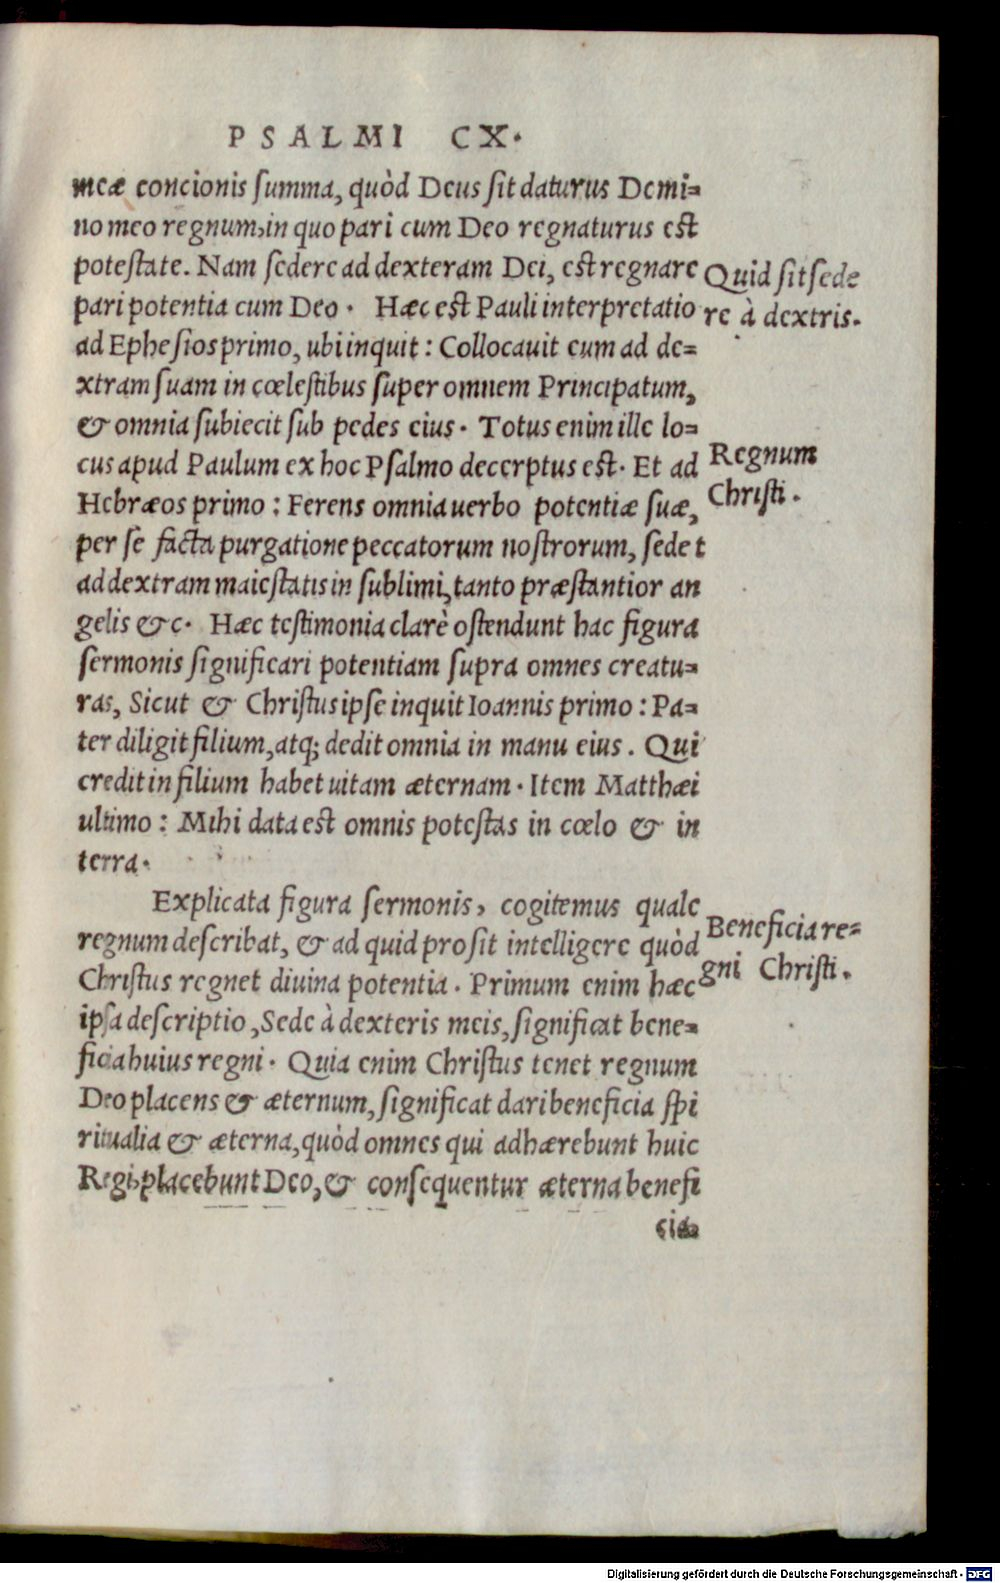 PSALMI CX.
meæ concionis summa, quòd Deus sit daturus Domi=
no meo regnum, in quo pari cum Deo regnaturus est
potestate. Nam sedere ad dexteram Dei, est regnare
pari potentia cum Deo. Hæc est Pauli interpretatio
Quid sit sede
re à dextris.
ad Ephesios primo, ubi inquit: Collocauit eum ad de=
xtram suam in cœlestibus super omnem Principatum,
& omnia subiecit sub pedes eius. Totus enim ille lo=
cus apud Paulum ex hoc Psalmo decerptus est. Et ad
Hebræos primo: Ferens omnia uerbo potentiæ suæ,
Regnum
Christi.
per se facta purgatione peccatorum nostrorum, sedet
ad dextram maiestatis in sublimi, tanto præstantior an
gelis &c. Hæc testimonia clarè ostendunt hac figura
sermonis significari potentiam supra omnes creatu=
ras, Sicut & Christus ipse inquit Ioannis primo: Pa=
ter diligit filium, atq; dedit omnia in manu eius. Qui
credit in filium habet uitam æternam. Item Matthæi
ultimo: Mihi data est omnis potestas in cœlo & in
terra.
Explicata figura sermonis, cogitemus quale
regnum describat, & ad quid prosit intelligere quòd
Christus regnet diuina potentia. Primum enim hæc
Beneficia re=
gni Christi.
ipsa descriptio, Sede à dexteris meis, significat bene=
ficia huius regni. Quia enim Christus tenet regnum
Deo placens & æternum, significat dari beneficia spi
ritualia & æterna, quòd omnes qui adhærebunt huic
Regi, placebunt Deo, & consequentur æterna benefi
cia
Digitalisierung gefördert durch die Deutsche Forschungsgemeinschaft - DFG